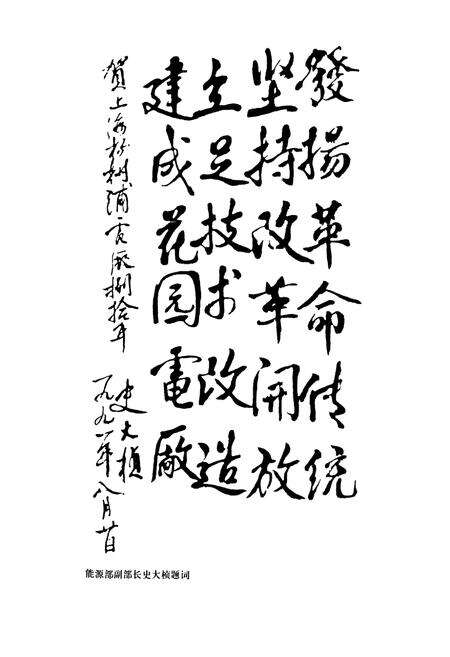 發揚革命传統
坚持改革開放
立足技术改造
建成花园電廠
賀上海杨树浦電廠捌拾年
史大桢
一九九一年八月廿日
能源部副部长史大桢题词